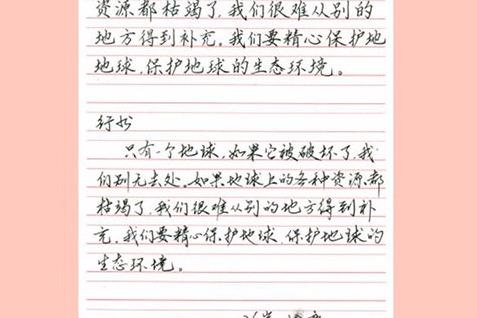 资源都枯竭了,我们很难从别的
地方得到补充。我们要精心保护地
地球,保护地球的生态环境。
行书
只有一个地球,如果它被破坏了,我
们别无去处。如果地球上的各种资源都
枯竭了,我们很难从别的地方得到补
充。我们要精心保护地球,保护地球的
生态环境。